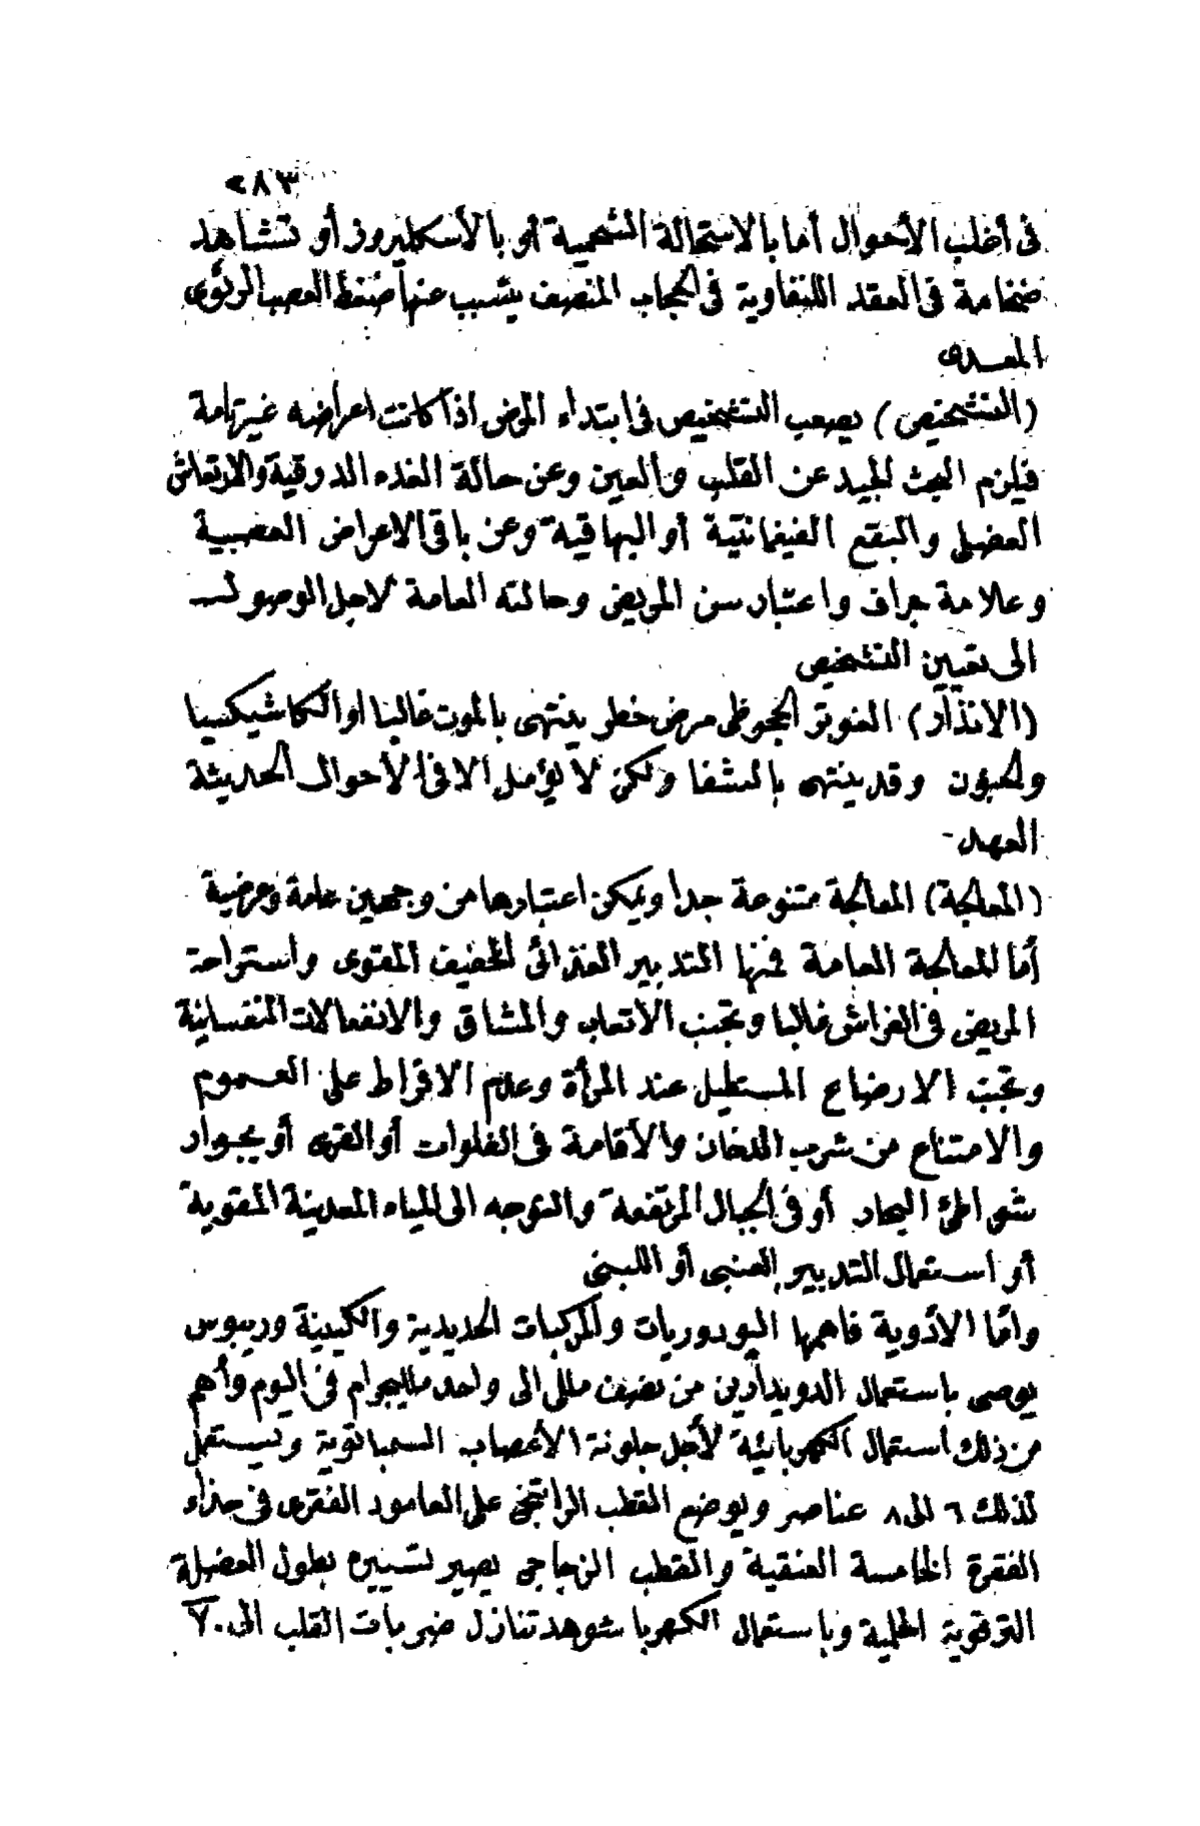 ٢٨٣
فى أغلب الأحوال أما بالاستحالة الشحمية أو بالأسكليروز أو تشاهد
ضخامة فى العقد اللنفاوية فى الحجاب المنصف يتسبب عنها ضغط العصب الرئوى
المعدى
(التشخيص) يصعب التشخيص فى ابتداء المرض اذا كانت اعراضه غير تامة
فيلزم البحث الجيد عن القلب والعين وعن حالة الغدة الدرقية والارتعاش
العضلى والبقع الفيفمانتية أو البهاقية وعن باقى الاعراض العصبية
وعلامة جراف واعتبار سن المريض وحالته العامة لاجل الوصول
الى تعيين التشخيص
(الانذار) الغوتر الجحوظى مرض خطر ينتهى بالموت غالبا او الكاشيكسيا
والجنون وقد ينتهى بالشفا ولكن لا يؤمل الا فى الأحوال الحديثة
العهد
(المعالجة) المعالجة متنوعة جدا ويمكن اعتبارها من وجهين عامة وعرضية
أما المعالجة العامة فمنها التدبير الغذائى الخفيف المقوى واستراحة
المريض فى الفراش غالبا وتجنب الأتعاب والمشاق والانفعالات النفسانية
وتجنب الارضاع المستطيل عند المرأة وعدم الافراط على العموم
والامتناع من شرب الدخان والأقامة فى الفلوات أو القرى أو بجوار
شواطئ البحار أو فى الجبال المرتفعة والتوجه الى المياه المعدنية المقوية
أو استعمال التدبير العنبى أو اللبنى
وأما الأدوية فاهمها اليودوريات والمركبات الحديدية والكينية وريبوس
يوصى باستعمال الدويدارين من نصف مللى الى واحد ملليجرام فى اليوم وأهم
من ذلك استعمال الكهربائية لأجل جلونة الأعصاب السمباتوية ويستعمل
لذلك ٦ الى ٨ عناصر ويوضع القطب الراتنجى على العامود الفقرى فى حذاء
الفقرة الخامسة العنقية والقطب الزجاجى يصير تسييره بطول العضلة
الترقوية الحلمية وباستعمال الكهربا شوهد تنازل ضربات القلب الى ٧٠